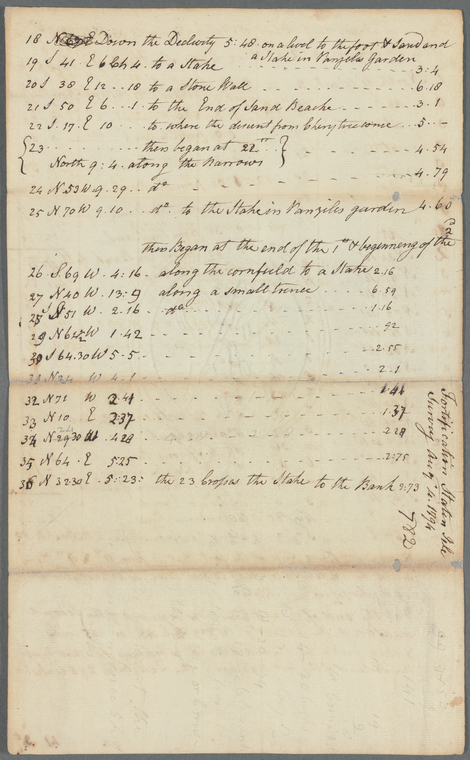 18 N E Down the Declivity 5:48 on a level to the foot & Sand and
a Stake in Vanziles Garden
19 S 41 E 6 Ch 4 . to a Stake - - - 3:4
20 S 38 E 12 .. 18 to a Stone Wall - - - 6.18
21 S 50 E 6 .. 1 . to the End of Sand Beache - - - 3.1
22 S. 17. E 10 ... to where the descent from Cherytree come .. 5 --
{ 23 . . . . . . . then began at 22nd . . } - - - 4.54
North 9: 4. along the Narrows - - - 4.79
24 N 53 W 9. 29 .. do - - -
25 N 70 W 9. 10 . . do. to the Stake in Vanziles garden 4.60
then Began at the end of the 1st & beginneng of the 2d
26 S. 69 W . 4:16 . along the cornfield to a Stake 2.16
27 N 40 W . 13:9 along a small - - - 6.59
28 S 51 W . 2.16 . do - - - 1.16
29 N 61½ W 1.42 - - - .92
30 S 64.30 W 5.5 - - - 2.55
31 N W 4.1 - - - 2.1
32 N 71 W 2.41 - - - 1.41
33 N 10 . E 2.37 - - - 1.37
34 N 29 30 W 4.28 - - - 2.28
35 N 64 . E 5.25 - - - 2.75
36 N 32 30 E . 5:23: the 23 Crosses the Stake to the Bank 2.73
Fortification Staten Isle
Survey Aug. 4. 1794
782